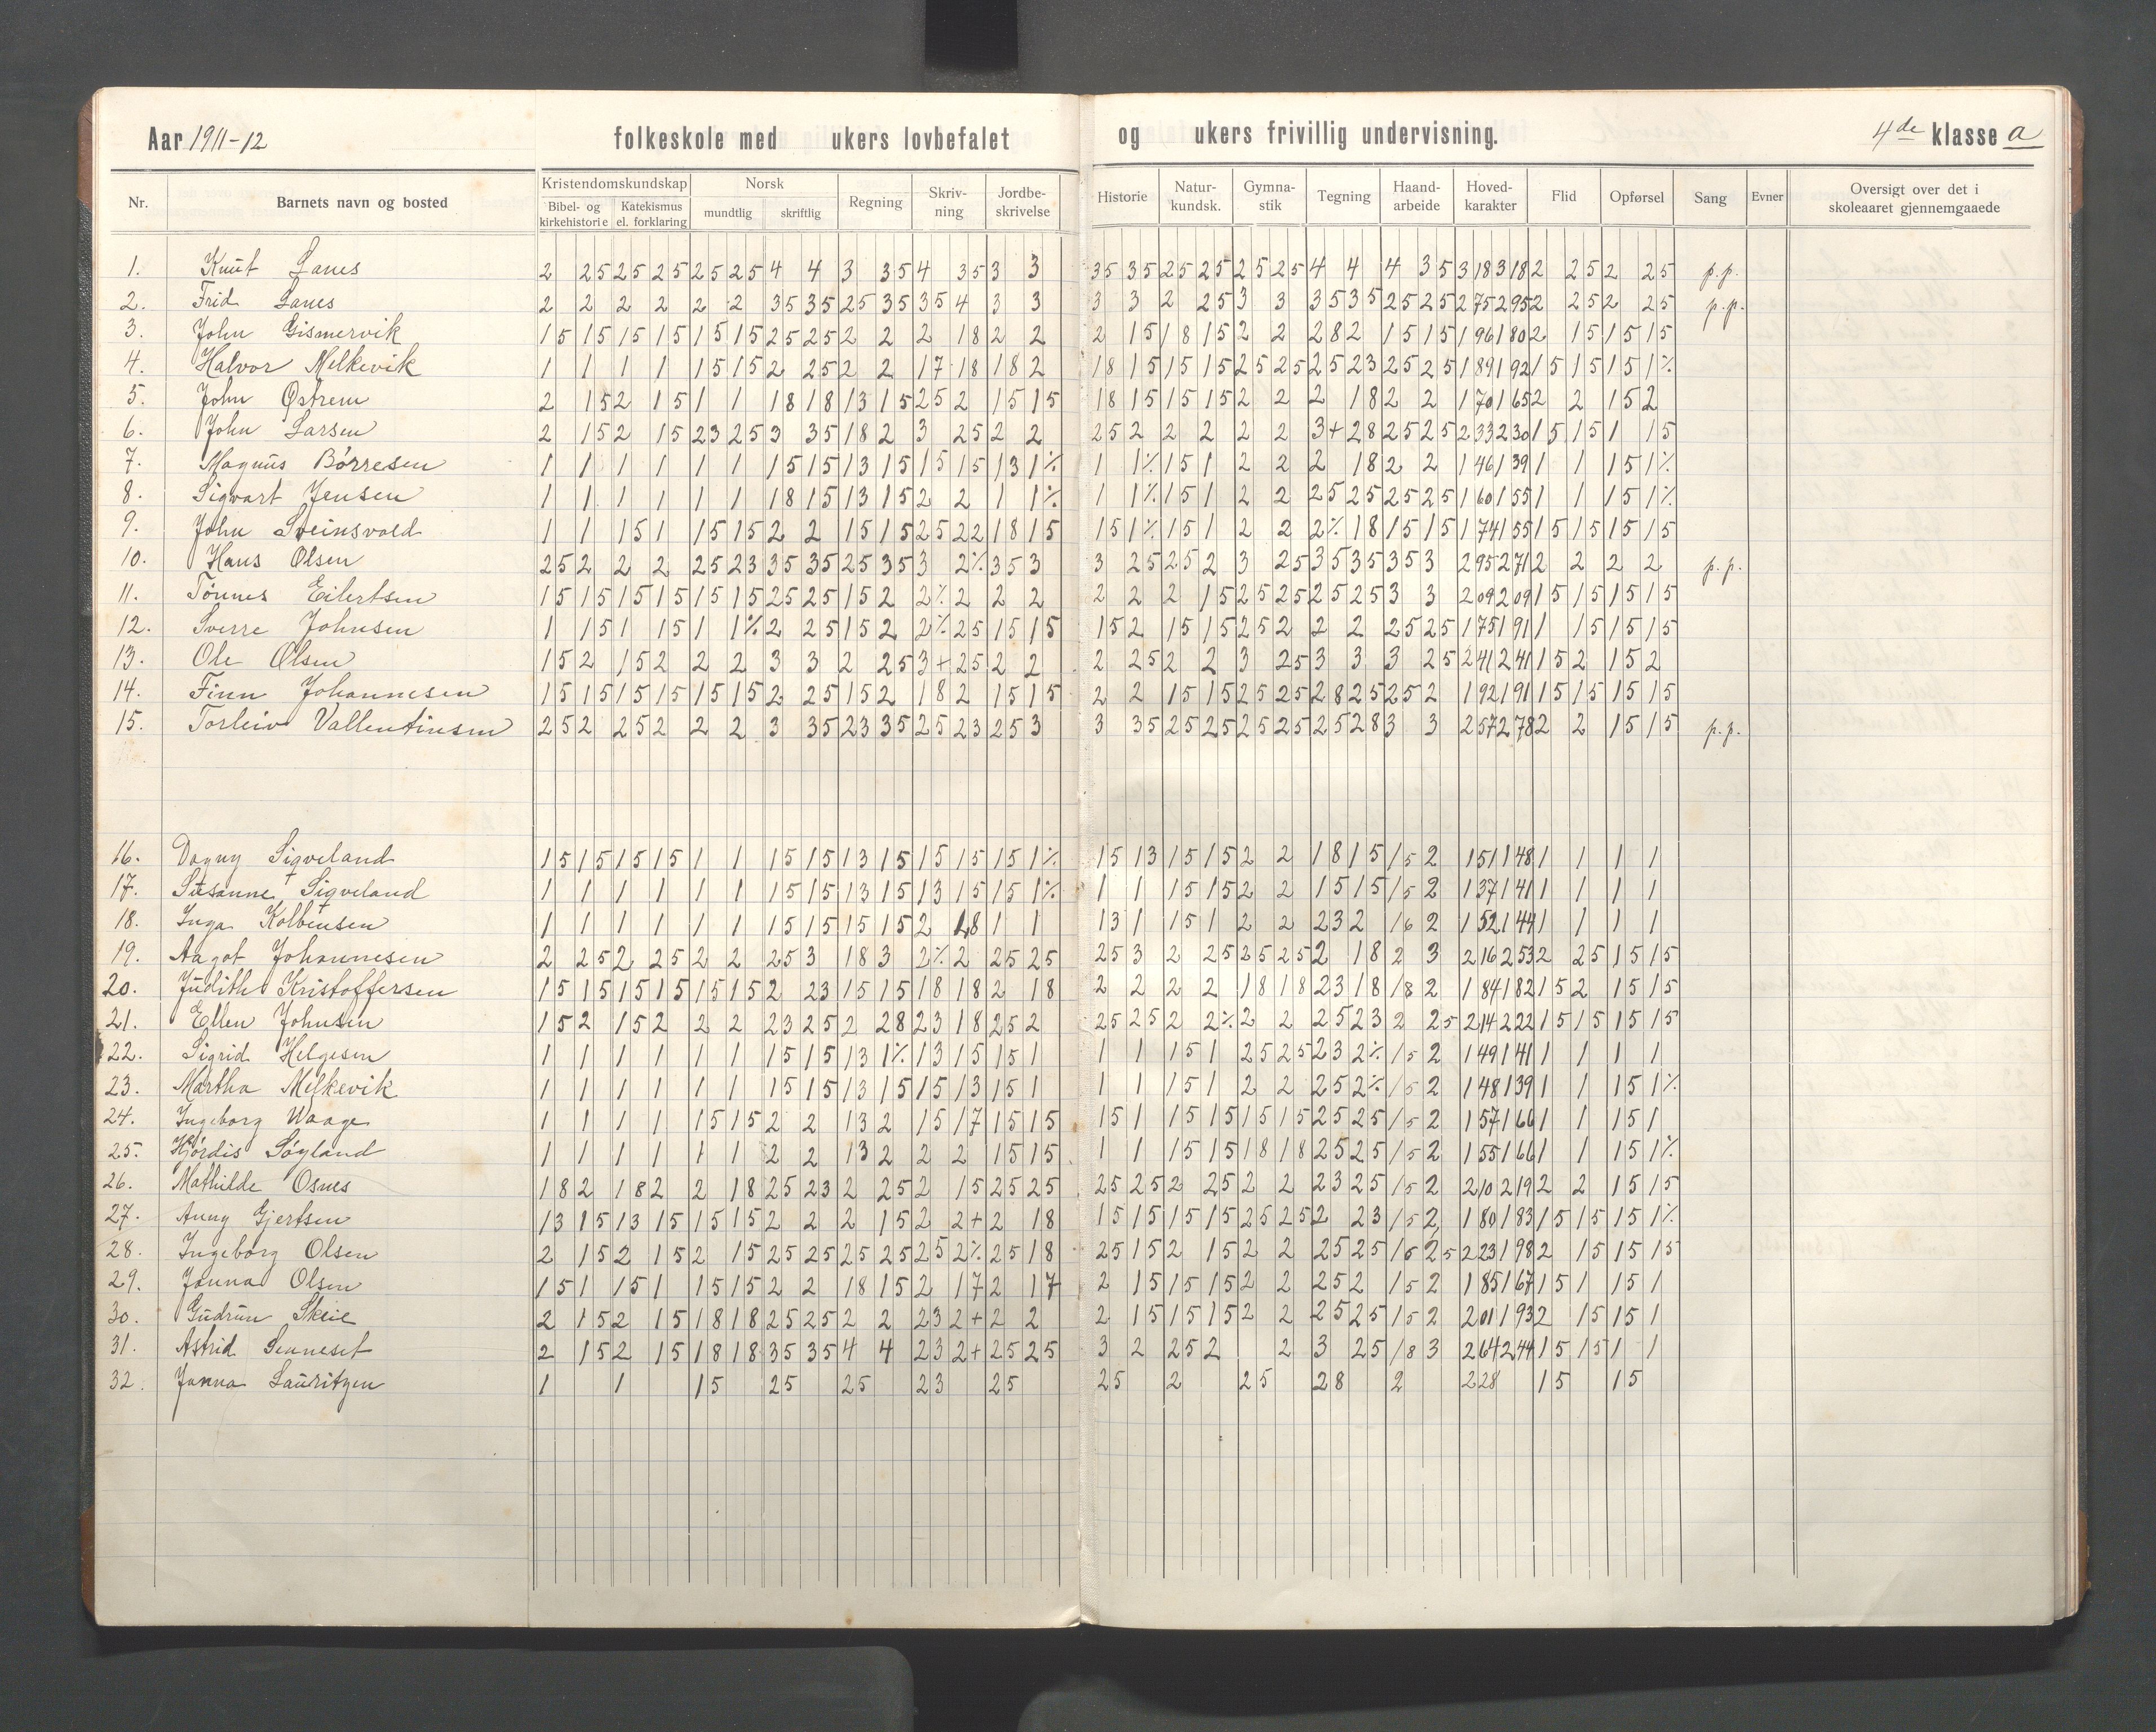 Aar 1911-12 folkeskole med ukers lovbefalet og ukers frivillig undervisning. 4de klasse a
Nr. Barnets navn og bosted Kristendomskundskap Norsk Regning Skriv- ning Jordbe- skrivelse Historie Natur- kundsk. Gymna- stik Tegning Haand- arbeide Hoved- karakter Flid Opførsel Sang Evner Oversigt over det i skoleaaret gjennemgaaede
Bibel- og kirkehistorie Katekismus el. forklaring mundtlig skriftlig
1. Knut Lanes 2 25 25 25 25 25 4 4 3 35 4 35 3 3 35 35 25 25 25 25 4 4 4 35 318 318 2 25 2 25 p.p.
2. Frid Lanes 2 2 2 2 2 2 35 35 25 35 35 4 3 3 3 3 2 25 3 3 35 35 25 25 275 295 2 25 2 25 p.p.
3. John Gismervik 15 15 15 15 15 15 25 25 2 2 2 18 2 2 2 15 18 15 2 2 28 2 15 15 196 180 2 15 15 15
4. Halvor Melkevik 1 1 1 1 15 15 2 25 2 2 17 18 18 2 18 15 15 15 25 25 25 23 25 25 189 192 15 15 15 1%
5. John Østrem 2 15 2 15 1 1 18 18 13 15 25 2 15 15 18 15 15 15 2 2 2 18 2 2 170 165 2 2 15 2
6. John Larsen 2 15 2 15 23 25 3 35 18 2 3 25 2 2 25 2 2 2 2 2 3+ 28 25 25 233 230 15 15 1 15
7. Magnus Børresen 1 1 1 1 1 1 15 15 13 15 15 15 13 1% 1 1% 15 1 2 2 2 18 2 2 146 139 1 1 15 1%
8. Sigvart Jensen 1 1 1 1 1 1 18 15 13 15 2 2 1 1% 1 1% 15 1 2 2 25 25 25 25 160 155 1 1 15 1%
9. John Sveinsvold 1 1 15 1 15 15 2 2 15 15 25 22 18 15 15 1% 15 1 2 2 2% 18 15 15 174 155 15 15 15 15
10. Hans Olsen 25 2 2 2 25 23 35 35 25 35 3 2% 35 3 3 25 25 2 3 25 35 35 35 3 295 271 2 2 2 2 p.p.
11. Tønnes Eilertsen 15 15 15 15 15 15 25 25 15 2 2% 2 2 2 2 2 2 15 25 25 25 25 3 3 209 209 15 15 15 15
12. Sverre Johnsen 1 15 1 15 1 1% 2 25 15 2 2% 25 15 15 15 2 15 15 25 2 2 2 25 25 175 191 1 15 15 15
13. Ole Olsen 15 2 15 2 2 2 3 3 2 25 3+ 25 2 2 2 25 2 2 3 25 3 3 3 25 241 241 15 2 15 2
14. Finn Johannesen 15 15 15 15 15 15 2 25 15 2 18 2 15 15 2 2 15 15 25 25 28 25 25 2 192 191 15 15 15 15
15. Torleiv Vallentinsen 25 2 25 2 2 2 3 35 23 35 25 23 25 3 3 35 25 25 25 25 25 28 3 3 257 278 2 2 15 15 p.p.
16. Dagny Sigveland 15 15 15 15 1 1 15 15 13 15 15 15 15 1% 15 13 15 15 2 2 18 15 15 2 151 148 1 1 1 1
17. Susanne Sigveland 1 1 1 1 1 1 15 15 13 15 13 15 15 1% 1 1 15 15 2 2 15 15 15 2 137 141 1 1 1 1
18. Inga Kolbeinsen 1 1 1 1 1 1 15 15 15 15 2 18 1 1 13 1 15 1 2 2 23 2 16 2 152 144 1 1 1 1
19. Aagot Johannesen 2 25 2 25 2 2 25 3 18 3 2% 2 25 25 25 3 2 25 25 25 2 18 2 3 216 253 2 25 15 15
20. Judith Kristoffersen 15 15 15 15 15 15 2 23 15 15 18 18 2 18 2 2 2 2 18 18 23 18 18 2 184 182 15 2 15 15
21. Ellen Johnsen 15 2 15 2 2 2 23 25 2 28 23 18 25 2 25 25 2 2% 2 2 25 23 2 25 214 222 15 15 15 15
22. Sigrid Helgesen 1 1 1 1 1 1 15 15 13 1% 13 15 15 1 1 1 15 1 25 25 23 2% 15 2 149 141 1 1 1 1
23. Martha Melkevik 1 1 1 1 1 1 15 15 13 15 15 13 15 1 1 1 15 1 2 2 25 2% 15 2 148 139 1 1 15 1%
24. Ingeborg Waage 1 1 1 1 15 15 2 2 13 2 15 17 15 15 15 1 15 15 15 15 25 25 15 2 157 166 1 1 15 1
25. Hjørdis Søyland 1 1 1 1 1 1 2 2 13 2 2 2 15 15 1 1 15 15 18 18 25 25 15 2 155 166 1 1 15 1%
26. Mathilde Osnes 18 2 18 2 2 18 25 23 2 25 2 15 25 25 25 25 2 25 2 2 23 25 15 2 210 219 2 2 15 15
27. Anny Gjertsen 13 15 13 15 15 15 2 2 2 15 2 2+ 2 18 15 15 15 15 25 25 2 23 15 2 180 183 15 15 15 1%
28. Ingeborg Olsen 2 15 2 15 2 15 25 25 25 25 25 2% 25 18 25 15 2 15 2 2 25 25 16 25 223 198 2 15 15 15
29. Janna Olsen 15 1 15 1 15 15 2 2 18 15 2 17 2 17 2 15 15 15 2 2 25 2 15 2 185 167 15 1 15 1
30. Gudrun Skeie 2 15 2 15 18 18 25 25 2 2 23 2+ 2 2 2 15 15 15 2 2 25 25 15 2 201 193 2 15 15 1
31. Astrid Senneset 2 15 2 15 18 18 35 35 4 4 23 2+ 25 25 3 2 25 2 2 3 25 18 3 264 244 15 15 1 1
32. Janna Lauritzen 1 1 15 25 25 23 25 25 2 25 28 2 228 15 15